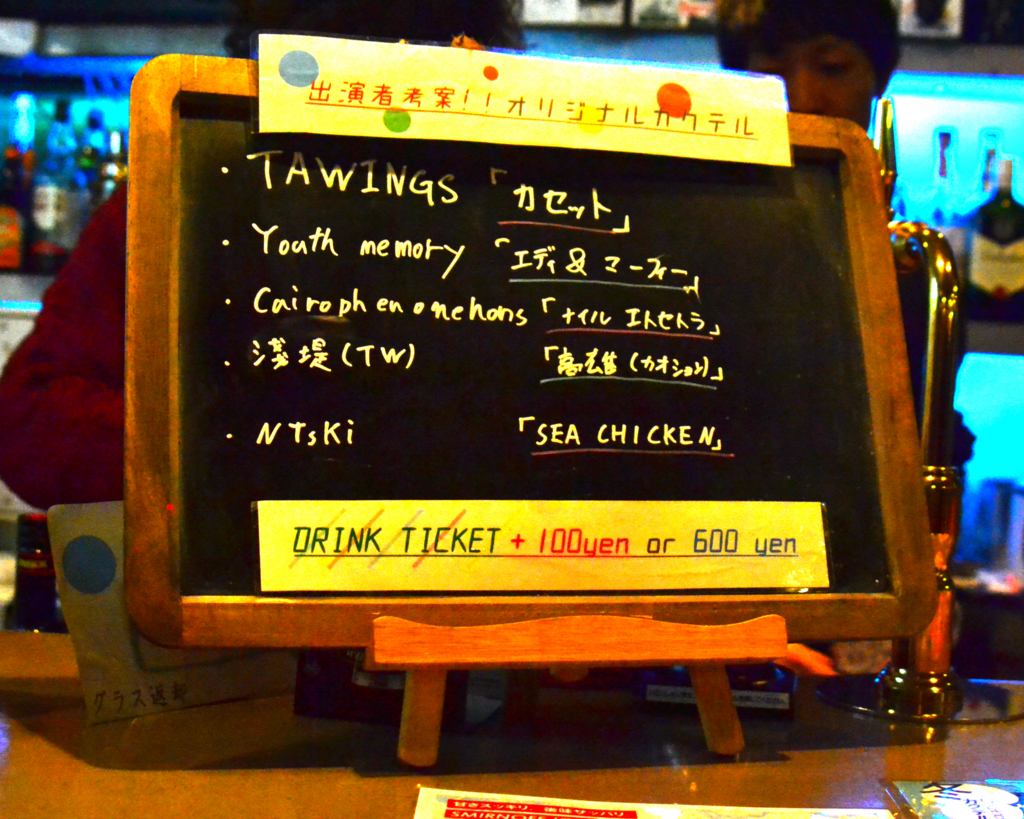 出演者考案!!オリジナルカクテル
・TAWINGS 「カセット」
・Youth memory 「エディ&マーフィー」
・Cairophenomenons 「ナイル エトセトラ」
・浅堤(TW) 「高雄(カオション)」
・NTsKi 「SEA CHICKEN」
DRINK TICKET + 100yen or 600 yen
グラス返却
甘さスッキリ 後味サッパリ
SMIRNOFF